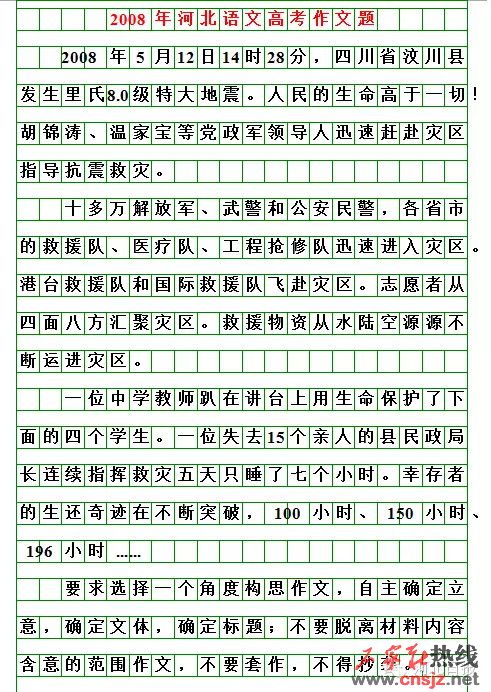 2008年河北语文高考作文题
2008 年 5 月 12日14时28分，四川省汶川县
发生里氏8.0级特大地震。人民的生命高于一切！
胡锦涛、温家宝等党政军领导人迅速赶赴灾区
指导抗震救灾。
十多万解放军、武警和公安民警，各省市
的救援队、医疗队、工程抢修队迅速进入灾区。
港台救援队和国际救援队飞赴灾区。志愿者从
四面八方汇聚灾区。救援物资从水陆空源源不
断运进灾区。
一位中学教师趴在讲台上用生命保护了下
面的四个学生。一位失去15个亲人的县民政局
长连续指挥救灾五天只睡了七个小时。幸存者
的生还奇迹在不断突破，100 小时、150 小时、
196 小时 ......
要求选择一个角度构思作文，自主确定立
意，确定文体，确定标题；不要脱离材料内容
含意的范围作文，不要套作，不得抄
石家庄热线
www.cnsjz.net